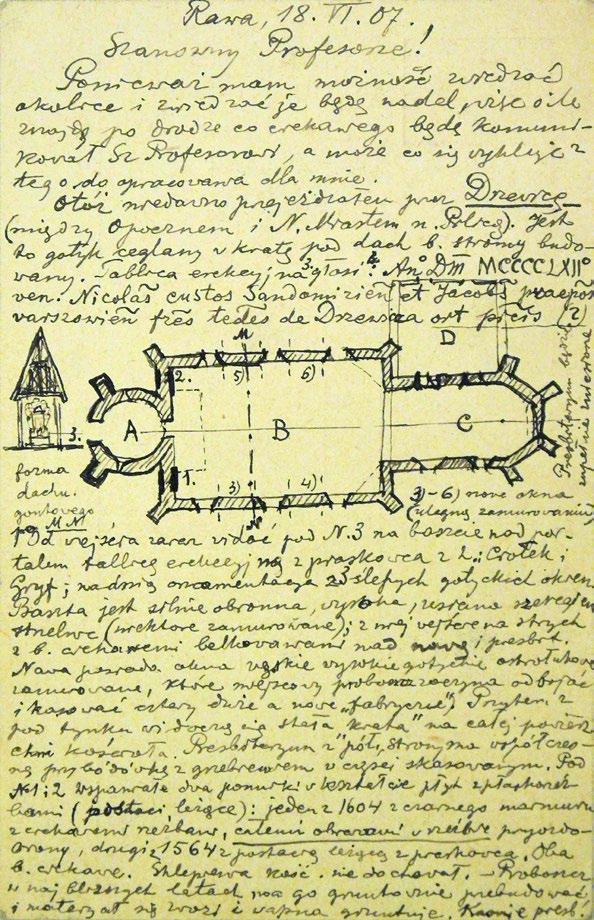 Rawa, 18. VI. 07.
Szanowny Profesorze!
Ponieważ mam możność zwiedzać
okolice i zwiedzać je będę nadal, więc o ile
znajdę po drodze co ciekawego będę komuni-
kował Sz Profesorowi, a może co się wykluje z
tego do opracowania dla mnie.
Otóż niedawno przejeżdżałem przez Drzewicę
(między Opocznem i N. Miastem n. Pilicą). Jest
to gotyk ceglany w kratę pod dach b. stromy budo-
wany. Tablica erekcyjna głosi: Ano Dm MCCCCLXII°
ven. Nicolaus custos Sandomirien et Jacobus praepos
varszowień frēs de Drzewica
(2)
M
D
3.
A
B
C
2.
1.
5)
6)
3)
4)
N
Prezbiterjum będzie
zupełnie zniesione
forma
dachu
gontowego
po M N
3)-6) nowe okna
(ulegną zamurowaniu)
Od wejścia zaraz widać pod N.3 na baszcie nad por-
talem tablicę erekcyjną z piaskowca z L: Ciołek i
Gryf; nad nią ornamentacja z 3 ślepych gotyckich okien.
Baszta jest silnie obronna, wysoka, szeregiem
strzelnic (niektóre zamurowane); z niej wejście na strych
z b. ciekawemi belkowaniami nad nawą i presbit.
Nawa posiada okna wązkie wysokie gotyckie ostrołukowe
zamurowane, które miejscowy proboszcz zaczyna odbijać
i kasować cztery duże a nowe „fabryczne". Przytem z
pod tynku widoczną się stała „krata" na całej powierz-
chni kościoła. Presbiterjum z półn. strony ma współczes-
ną przybudówkę z grzebieniem w części skasowanym. Pod
№ 1 i 2 wspaniałe dwa pomniki w kształcie płyt z płaskorzeź-
bami (postaci leżące): jeden z 1604 z czarnego marmuru
z ciekawemi rzeźbami, całemi obrazami w rzeźbie przyozdo-
biony, drugi z 1564 z postacią leżącą z piaskowca. Oba
b. ciekawe. Sklepienia kość. nie dochował. – Proboszcz
w najbliższych latach ma go gruntownie przebudować
i materjał się zwozi i wapno gruntuje. Kasuje presb.